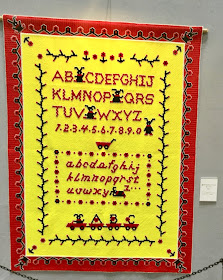 ABCDEFGHIJ
KLMNOPQRS
TUVWXYZ
1.2.3.4.5.6.7.8.9.0
abcdefghij
klmnopqrst
uvwxyz
A B C